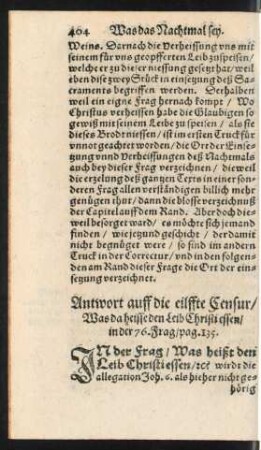 404 Was das Nachtmal sey.
Weins. Darnach die Verheissung vns mit
seinem für vns geopfferten Leib zuspeisen/
welche er zu dieser niessung gesetzt hat/ weil
eben dise zwey Stück in einsetzung deß Sa-
craments begriffen werden. Derhalben
weil ein eigne Frag hernach kompt/ Wo
Christus verheissen habe die Glaubigen so
gewiß mit seinem Leibe zu speisen/ als sie
dieses Brodt niessen/ ist im ersten Truck für
vnnot geachtet worden/ die Ort der Einse-
tzung vnnd Verheissungen deß Nachtmals
auch bey dieser Frag verzeichnen/ dieweil
die erzelung deß gantzen Texts in einer son-
deren Frag allen verständigen billich mehr
genügen thut/ dann die blosse verzeichnuß
der Capitel auff dem Rand. Aber doch die-
weil besorget ward/ es möchte sich jemand
finden/ wie jetzund geschicht/ der damit
nicht begnüget were/ so sind im andern
Truck in der Correctur/ vnd in den folgen-
den am Rand dieser Frage die Ort der ein-
setzung verzeichnet.
Antwort auff die eilffte Censur/
Was da heisse den Leib Christi essen/
in der 76. Frag/ pag. 135.
IN der Frag/ Was heißt den
Leib Christi essen/ ꝛc? wirdt die
allegation Joh. 6. als hieher nicht ge-
hörig